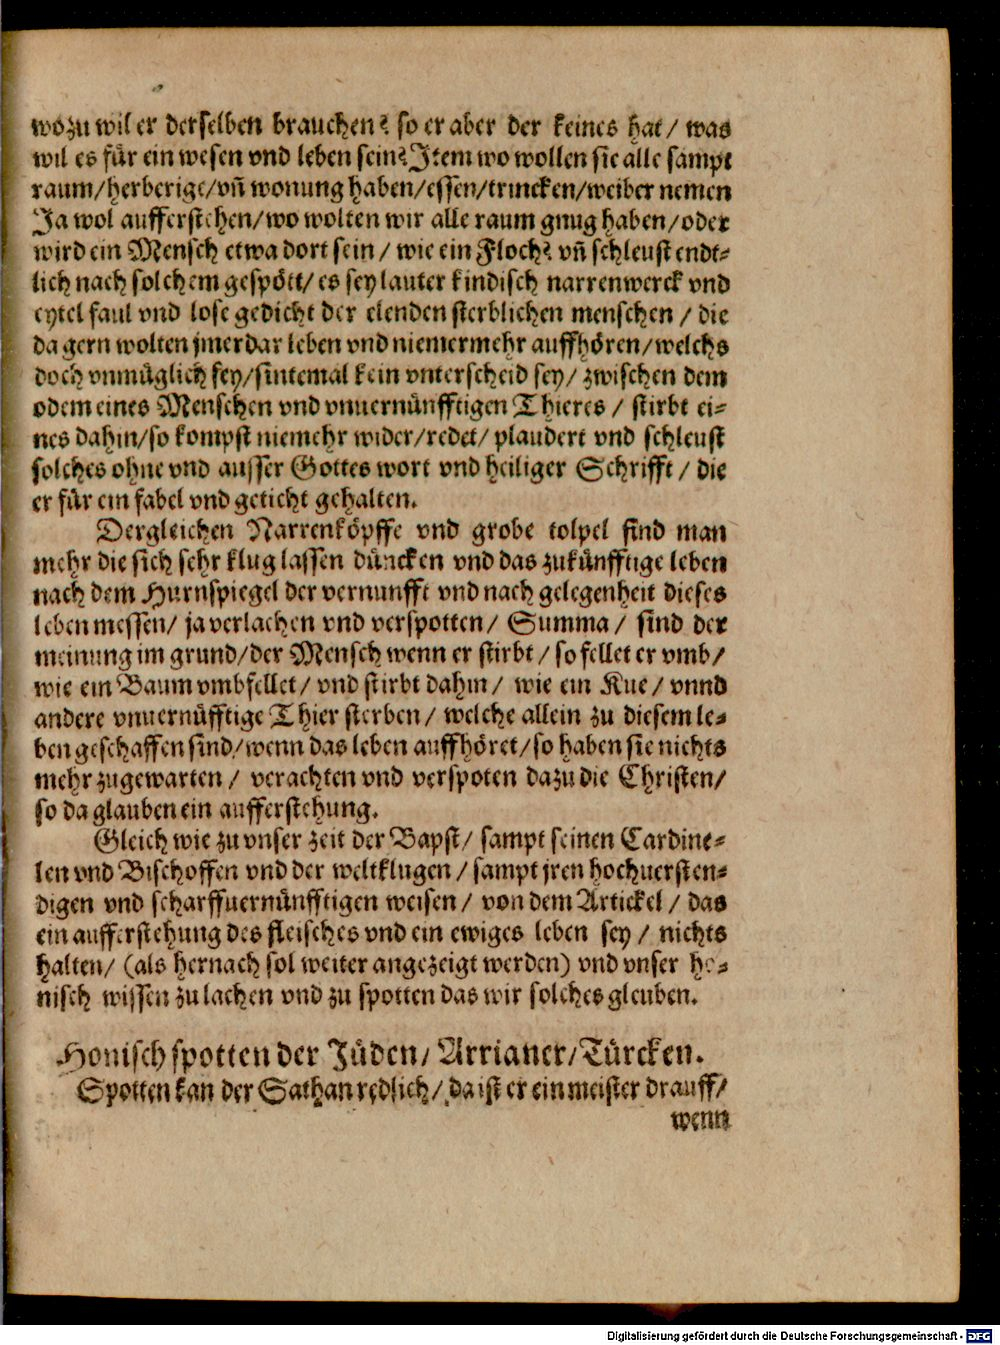 wozu wil er derselben brauchen? so er aber der keines hat / was
wil es für ein wesen vnd leben sein? Item wo wollen sie alle sampt
raum/herberige/vñ wonung haben/essen/trincken/weiber nemen
Ja wol aufferstehen/wo wolten wir alle raum gnug haben/oder
wird ein Mensch etwa dort sein / wie ein Floch? vñ schleust endt⸗
lich nach solchem gespött/ es sey lauter kindisch narrenwerck vnd
eytel faul vnd lose gedicht der elenden sterblichen menschen / die
da gern wolten jmerdar leben vnd niemermehr auffhören/welchs
doch vnmüglich sey/sintemal kein vnterscheid sey/ zwischen dem
odem eines Menschen vnd vnuernünfftigen Thieres / stirbt ei⸗
nes dahin/so kompst niemehr wider/redet/ plaudert vnd schleust
solches ohne vnd ausser Gottes wort vnd heiliger Schrifft / die
er für ein fabel vnd geticht gehalten.
Dergleichen Narrenköpffe vnd grobe tolpel find man
mehr die sich sehr klug lassen düncken vnd das zukünfftige leben
nach dem Hurnspiegel der vernunfft vnd nach gelegenheit dieses
leben messen/ ja verlachen vnd verspotten/ Summa / sind der
meinung im grund/der Mensch wenn er stirbt / so fellet er vmb/
wie ein Baum vmbfellet/ vnd stirbt dahin/ wie ein Kue / vnnd
andere vnuernüfftige Thier sterben / welche allein zu diesem le⸗
ben geschaffen sind/wenn das leben auffhöret/so haben sie nichts
mehr zugewarten / verachten vnd verspoten dazu die Christen/
so da glauben ein aufferstehung.
Gleich wie zu vnser zeit der Bapst/ sampt seinen Cardine⸗
len vnd Bischoffen vnd der weltklugen / sampt jren hochuersten⸗
digen vnd scharffuernünfftigen weisen / von dem Artickel / das
ein aufferstehung des fleisches vnd ein ewiges leben sey / nichts
halten/ (als hernach sol weiter angezeigt werden) vnd vnser hö⸗
nisch wissen zu lachen vnd zu spotten das wir solches gleuben.
Honisch spotten der Jüden/ Arrianer/Türcken.
Spotten kan der Sathan redlich/ da ist er ein meister drauff/
wenn
Digitalisierung gefördert durch die Deutsche Forschungsgemeinschaft - DFG